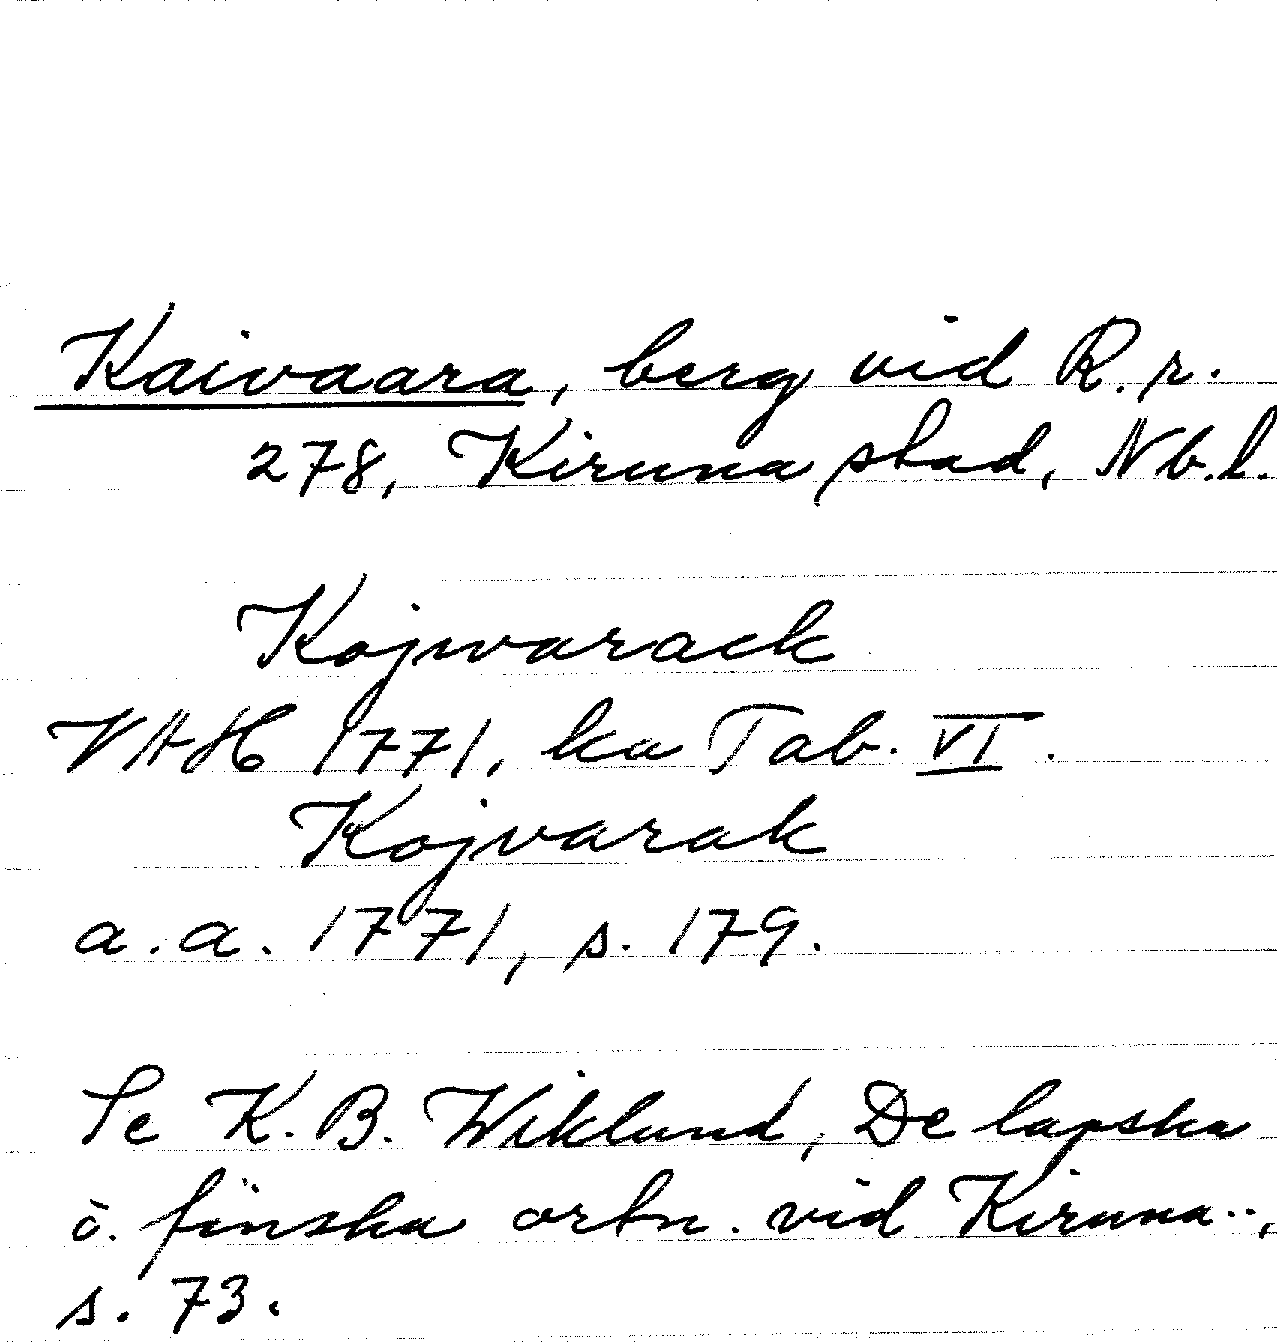 Kaivaara, berg vid R.r.
278, Kiruna stad, Nb.l.
Kojwarack
VAH 1771, ka Tab. VI.
Kojvarak
a.a. 1771, s. 179.
Se K.B. Wiklund, De lapska
o. finska ortn. vid Kiruna..,
s. 73.